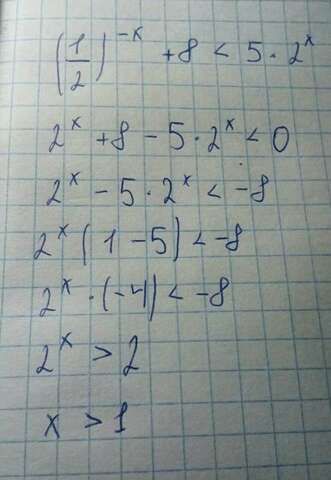 (1/2)^(-x) + 8 < 5 · 2^x
2^x + 8 - 5 · 2^x < 0
2^x - 5 · 2^x < -8
2^x (1 - 5) < -8
2^x · (-4) < -8
2^x > 2
x > 1